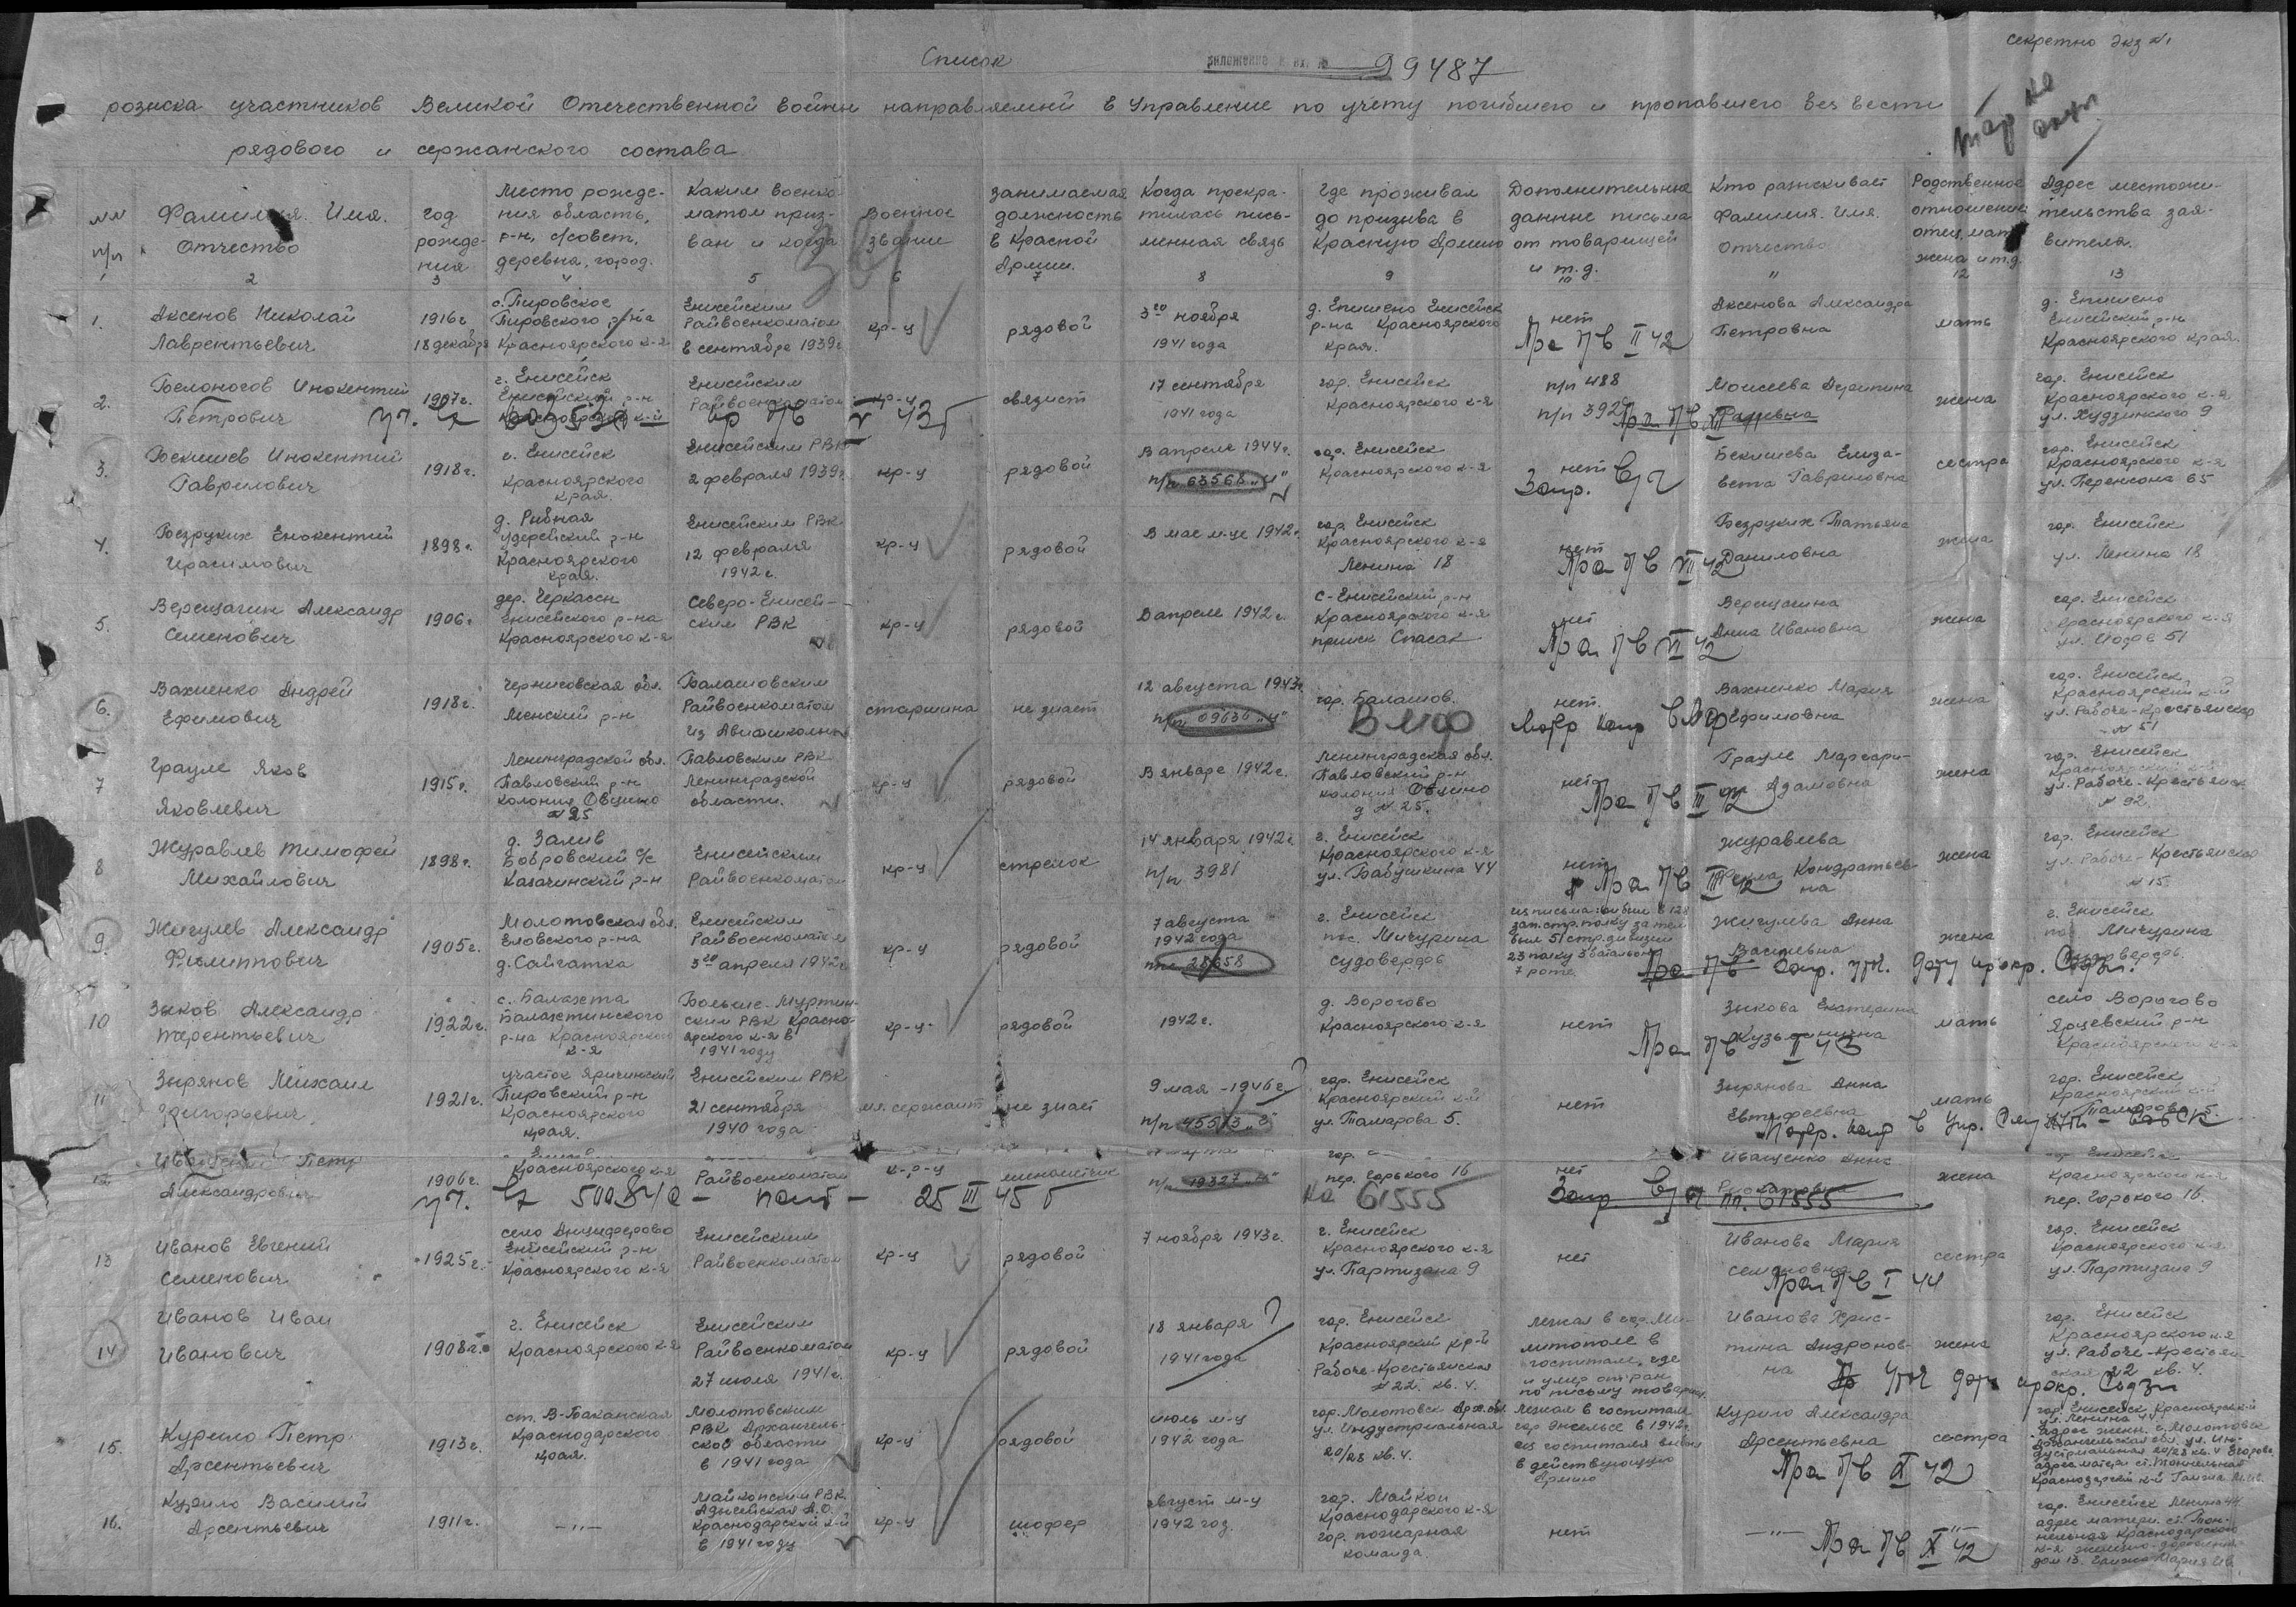 секретно Экз №1
Список
99487
розыска участников Великой Отечественной войны направляемый в Управление по учету погибшего и пропавшего без вести
рядового и сержанского состава
№№ п/п
Фамилия. Имя. Отчество
год рождения
Место рождения область, р-н, с/совет, деревня, город.
Каким военкоматом призван и когда
Военное звание
занимаемая должность в Красной Армии.
Когда прекратилась письменная связь
Где проживал до призыва в Красную Армию
Дополнительные данные письма от товарищей и т.д.
Кто разыскивает Фамилия. Имя. отчество
Родственное отношение отец, мать жена и т.д.
Адрес местожительства заявителя.
1 2 3 4 5 6 7 8 9 10 11 12 13
1. Аксенов Николай Лаврентьевич
1916г 18 декабря
с. Пировское Пировского р-на Красноярского к-я
Енисейским Райвоенкоматом в сентябре 1939г
кр-ц
рядовой
3го ноября 1941 года
д. Епишено Енисейск р-на Красноярского края.
нет
Про п/в II 42
Аксенова Александра Петровна
мать
д. Епишено Енисейский р-н Красноярского края.
2. Белоногов Инокентий Петрович
1907г.
г. Енисейск Енисейский р-н Красноярский к-й
Енисейским Райвоенкоматом
кр-ц
связист
17 сентября 1941 года
гор. Енисейск Красноярского к-я
п/п 488
п/п 392
Моисеева
жена
гор. Енисейск Красноярского к-я ул. 9
3. Бекишев Инокентий Гаврилович
1918г.
г. Енисейск Красноярского края.
Енисейским РВК 2 февраля 1939г
кр-ц
рядовой
В апреле 1944г. п/п 63568 "ц"
гор. Енисейск Красноярского к-я
нет
Запр. в/ч
Бекишева Елизавета Гавриловна
сестра
гор. Енисейск Красноярского к-я ул. Перенсона 65
4. Безруких Енокентий Ирасимович
1898г.
д. Рыбная Удерейский р-н Красноярского края.
Енисейским РВК 12 февраля 1942г.
кр-ц
рядовой
В мае м-це 1942г.
гор. Енисейск Красноярского к-я Ленина 18
нет
Про п/в VII 42
Безруких Татьяна Даниловна
жена
гор. Енисейск ул. Ленина 18
5. Верещагин Александр Семенович
1906г.
дер. Черкассы Енисейского р-на Красноярского к-я
Северо-Енисейским РВК
кр-ц
рядовой
В апреле 1942г.
С-Енисейский р-н Красноярского к-я прииск Спасак
нет
Про п/в VI 42
Верещагина Анна Ивановна
жена
гор. Енисейск Красноярского к-я ул. 51
6. Вахненко Андрей Ефимович
1918г.
Черниговская обл. Менский р-н
Балашовским Райвоенкоматом из Авиашколы
старшина
не знает
12 августа 1943г п/п 09636 "ц"
гор. Балашов.
ВМФ
нет.
Вахненко Мария Ефимовна
жена
гор. Енисейск Красноярский к-й ул. Рабоче-Крестьянская № 51
7 Грауле Яков Яковлевич
1915г.
Ленинградской обл. Павловский р-н колония Овцино № 25
Павловским РВК Ленинградской области.
кр-ц
рядовой
В январе 1942г.
Ленинградская обл. Павловский р-н колония Овцино д № 25.
нет
Про п/в III 42
Грауле Маргарита Адамовна
жена
гор. Енисейск Красноярский к-й ул. Рабоче-Крестьянск. № 92.
8 Журавлев Тимофей Михайлович
1898г.
д. Залив Бобровский с/с Казачинский р-н
Енисейским Райвоенкоматом
кр-ц
стрелок
14 января 1942г п/п 3981
г. Енисейск Красноярского к-я ул. Бабушкина 44
нет
Про п/в III 42
Журавлева Фекла Кондратьевна
жена
гор. Енисейск ул. Рабоче-Крестьянская № 15.
9. Жигулев Александр Филиппович
1905г.
Молотовская обл. Еловского р-на д. Сайгатка
Енисейским Райвоенкоматом 3го апреля 1942г
кр-ц
рядовой
7 августа 1942 года 28658
г. Енисейск пос. Мичурина судоверфь
из письма: выбыл в 128 зап. стр. полку затем был 51 стр. дивизии 23 полку 3 батальон 7 роте.
Жигулева Анна Васильевна
жена
г. Енисейск пос. Мичурина судоверфь.
10 Зыков Александр Терентьевич
1922г.
с. Балахта Балахтинского р-на Красноярского к-я
Больше-Муртинским РВК Красноярского к-я в 1941 году
кр-ц
рядовой
1942г.
д. Ворогово Красноярского к-я
нет
Зыкова Екатерина Кузьминична
мать
село Ворогово Ярцевский р-н Красноярского к-я
11 Зырянов Михаил Григорьевич
1921г.
участок Пировский р-н Красноярского края.
Енисейским РВК 21 сентября 1940 года
мл. сержант
не знает
9 мая - 1946г? п/п 45573 "
гор. Енисейск Красноярский к-й ул. Тамарова 5.
нет
Зырянова Анна Евтифеевна
мать
гор. Енисейск Красноярский к-й ул. Тамарова 5.
12 Петр Александрович
1906г.
Красноярского к-я
Райвоенкоматом
к-р-ц
минометчик
п/п 19327 "
гор. пер. Горького 16
на 61555
нет
Запр. в/ч пп. 61555
Иващенко Анна
жена
Красноярского к-я пер. Горького 16.
25 III 45 г
13 Иванов Евгений Семенович
1925г.
село Анциферово Енисейский р-н Красноярского к-я
Енисейским Райвоенкоматом
кр-ц
рядовой
7 ноября 1943г.
г. Енисейск Красноярского к-я ул. Партизана 9
нет
Иванова Мария Семеновна
Про п/в I 44
сестра
гор. Енисейск Красноярского к-я ул. Партизана 9
14 Иванов Иван Иванович
1908г.
г. Енисейск Красноярского к-я
Енисейским Райвоенкоматом 27 июля 1941г.
кр-ц
рядовой
18 января ? 1941 года
гор. Енисейск Красноярский кр-й Рабоче-Крестьянская № 22. кв. 4.
лежал в гор. Милитополе в госпитале, где и умер от ран по письму товарищ.
Иванова Христина Андроновна
жена
гор. Енисейск Красноярского к-я ул. Рабоче-Крестьянская 22 кв. 4.
15. Курило Петр Арсентьевич
1913г.
ст. В-Баканская Краснодарского края.
Молотовским РВК Архангельской области в 1941 года
кр-ц
рядовой
июль м-ц 1942 года
гор. Молотовск Арх. обл. ул. Индустриальная 20/28 кв. 4.
Лежал в госпитале гор. Энгельсе в 1942г. из госпиталя выбыл в действующую Армию
Курило Александра Арсентьевна
Про п/в IX 42
сестра
гор. Енисейск Красноярск к-й ул. Ленина 44. адрес жены. г. Молотовск Архангельская обл. ул. Индустриальная 20/28 кв. 4
16. Курило Василий Арсентьевич
1911г.
-"-
Майкопским РВК Адыгейская А.О. Краснодарский к-й в 1941 году
кр-ц
шофер
август м-ц 1942 год.
гор. Майкоп Краснодарского к-я гор. пожарная команда.
нет
-"-
-"-
Про п/в X 42
гор. Енисейск Ленина 44. адрес матери. ст. Тоннельная Краснодарского к-я дом 13.